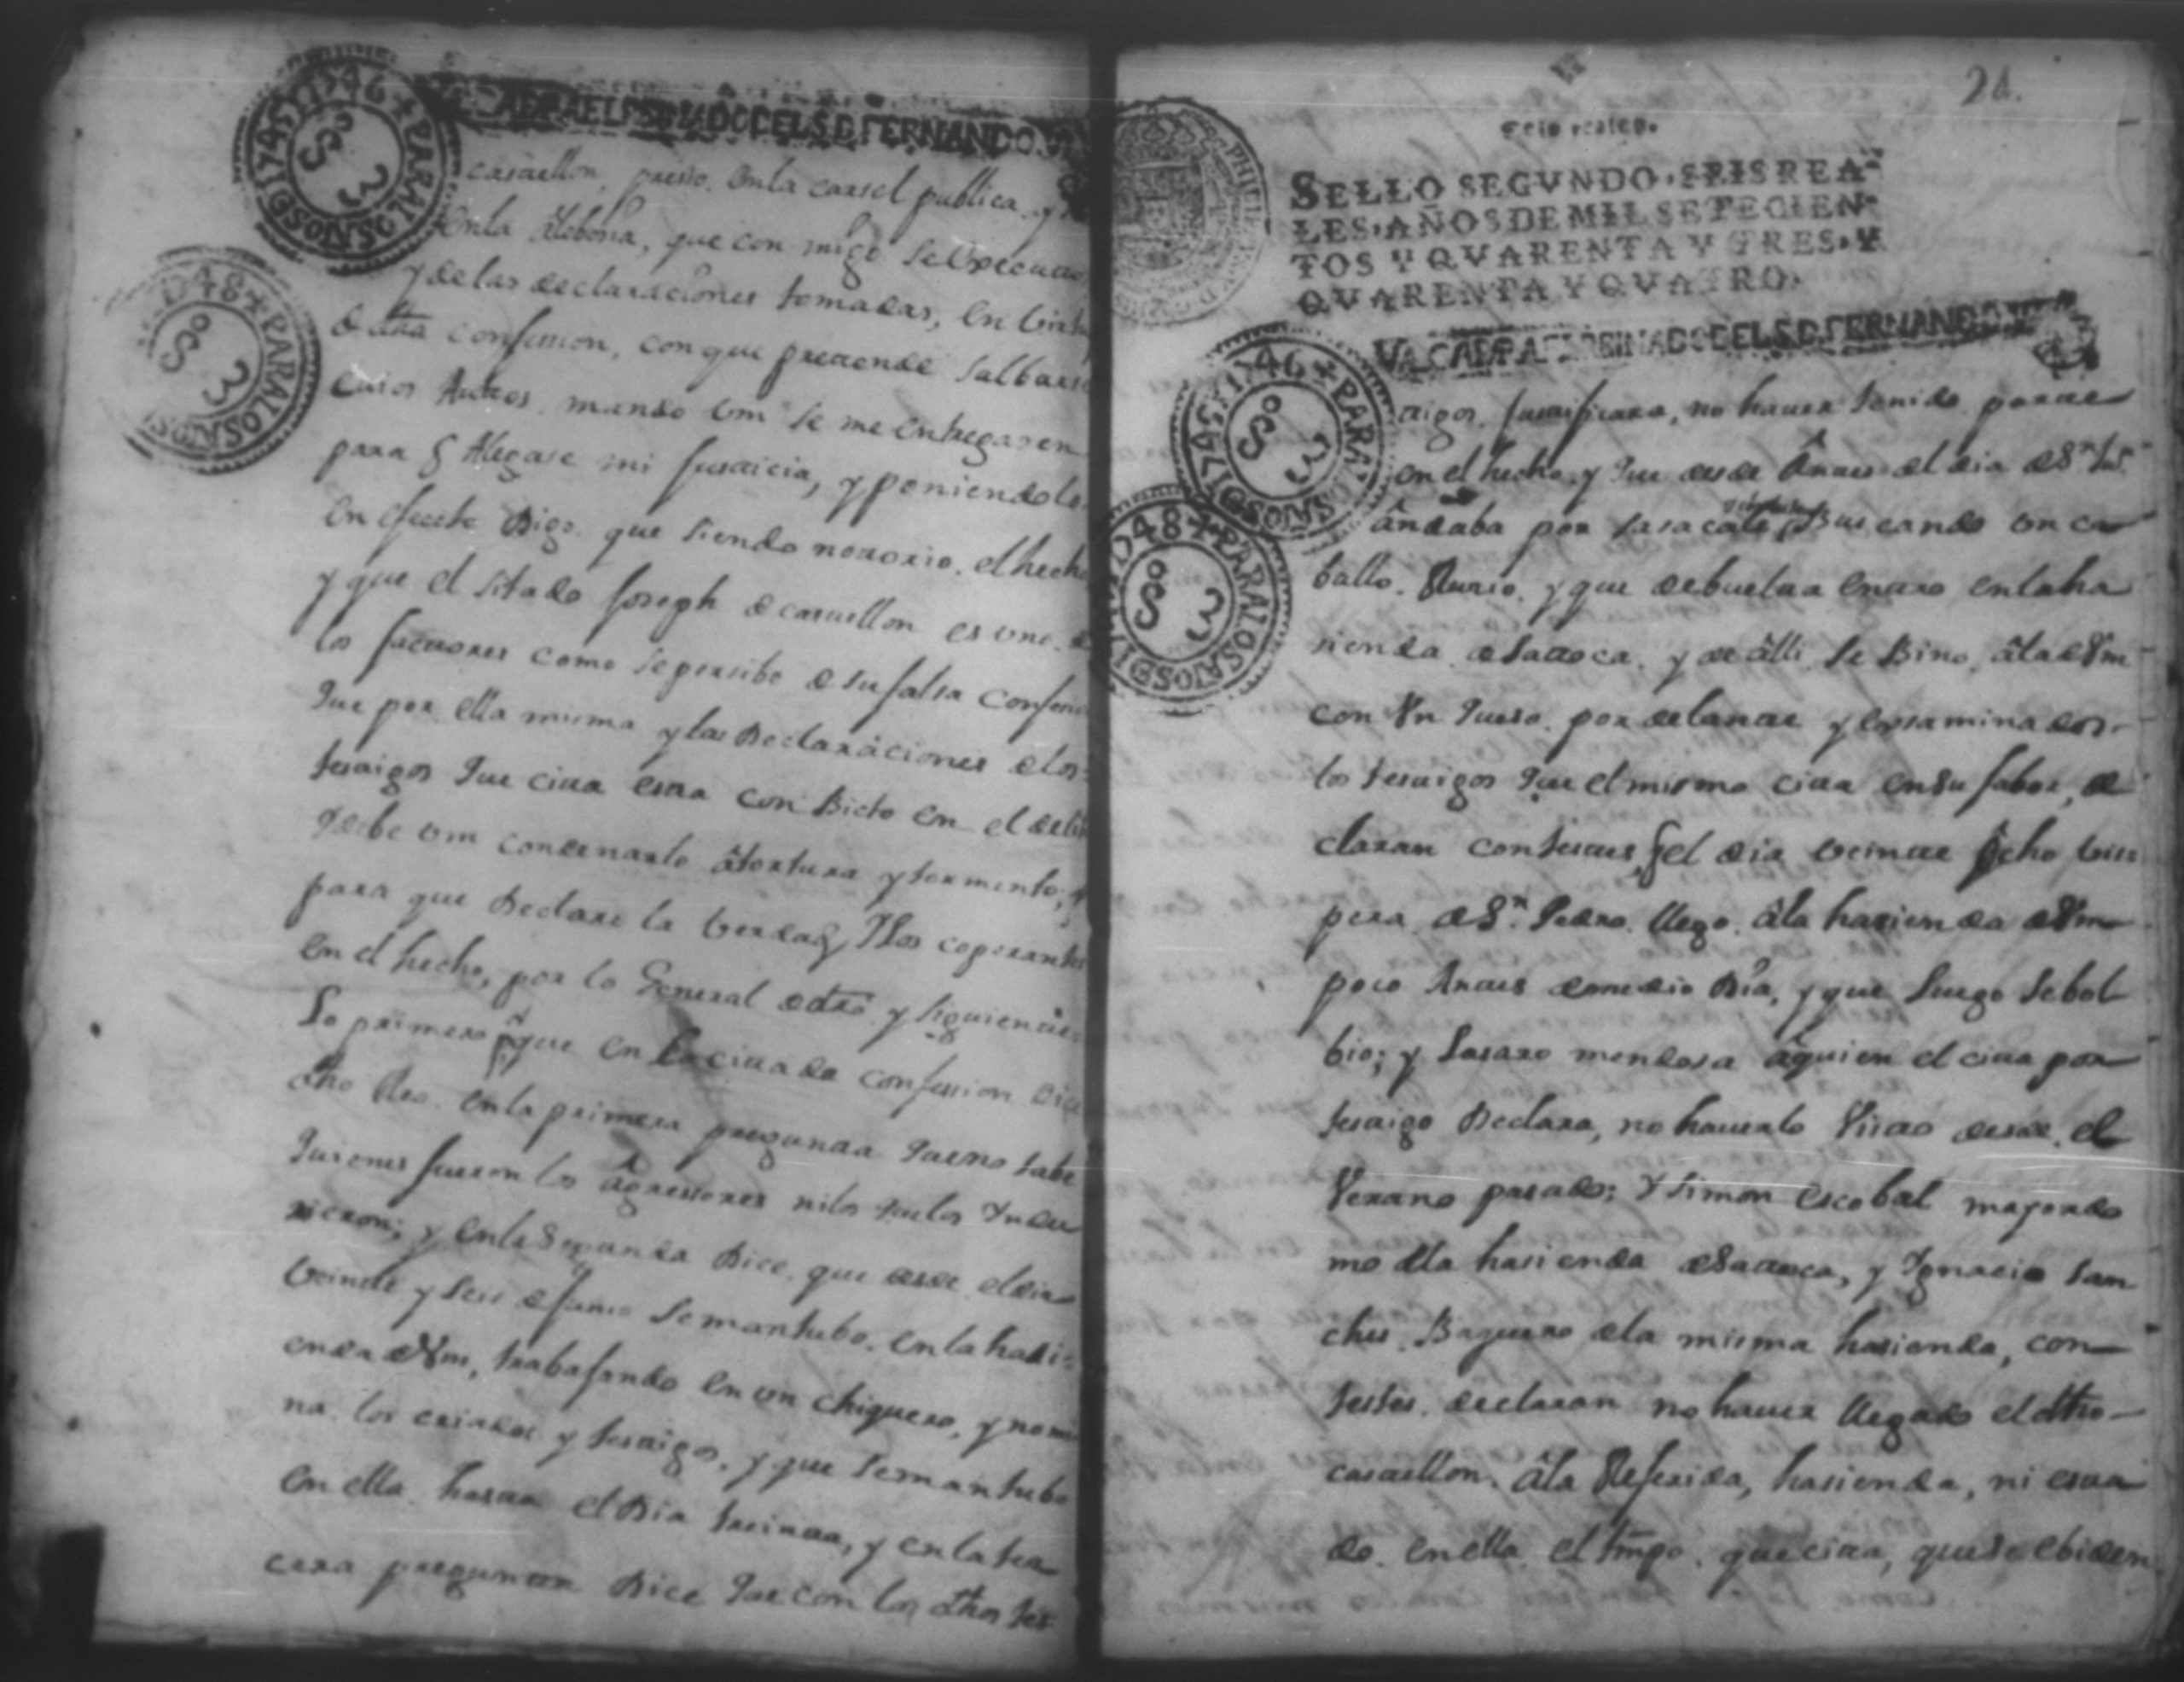 VALGA PARA EL REINADO DEL S.D. FERNANDO VI
PARA LOS AÑOS DE 1745 Y 1746
Sº 3
PARA LOS AÑOS D 48
Sº 3
casttellon, preso, en la carsel publica, y
en la Alebosia, que con migo se expecuto
y de las declaraciones tomadas, en birtud
de dha confesion, con que pretende salbarse
cuios Auttos mando Vm se me entregasen
para q Alegase mi justticia, y poniendolo
en efecto Digo que siendo nottorio el hecho
y que el sitado Joseph de casttellon es uno de
los facttores como se persibe de su falsa confesion
que por ella misma y las Declaraciones de los
testtigos que citta estta conbicto en el delito
y debe Vm condenarlo â tortura y tormento,
para que Declare la berdad, y los coperantes
en el hecho, por lo General de dro y siguiente
Lo primero que en la cittada confession dice
dho Reo en la primera pregunta que no sabe
quienes fueron los agressores ni los que los yndu
xicron; y en la Segunda Dice, que desde el dia
beinte y seis de Junio se mantubo en la hasi=
enda de Vm, trabajando en un chiquero, y nomi
na los criados y testtigos, y que se mantubo
en ella hastta el Dia treintta, y en la ter
cera pregunta Dice que con los dhos tes
24.
SELLO SEGVNDO, SEIS REA-
LES, AÑOS DE MIL SETECIEN-
TOS Y QVARENTA Y TRES, Y
QVARENTA Y QVATRO.
VALGA PARA EL REINADO DEL S.D. FERNANDO VI
PARA LOS AÑOS DE 1745 Y 1746
Sº 3
PARA LOS AÑOS D 48
Sº 3
ttigos justtificara, no hauer tenido partte
en el hecho y que desde Antes del dia de Sn Jun
ândaba por sacacate Buscando un ca
ballo Rucio, y que de buelta enttro en la ha
sienda de sattoca y de âlli se Bino, âla de Vm
con Vn queso por delante y exsaminados
los testtigos que el mismo citta en su fabor, de
claran contesttes q el dia beintte ôcho bis
pera de Sn Pedro llego âla hasienda de Vm
poco Anttes de medio Dia, y que luego se bol
bio; y Lasaro mendosa âquien el citta por
testtigo Declara, no hauerlo Vistto desde el
Verano pasado; y simon escobal mayordo
mo dla hasienda de Sattoca, y Ygnacio san
ches Baquero de la misma hasienda, con
testes declaran no hauer llegado el dho
casttellon âla Referida, hasienda, ni estta
do en ella el tmpo que citta, que se ebiden